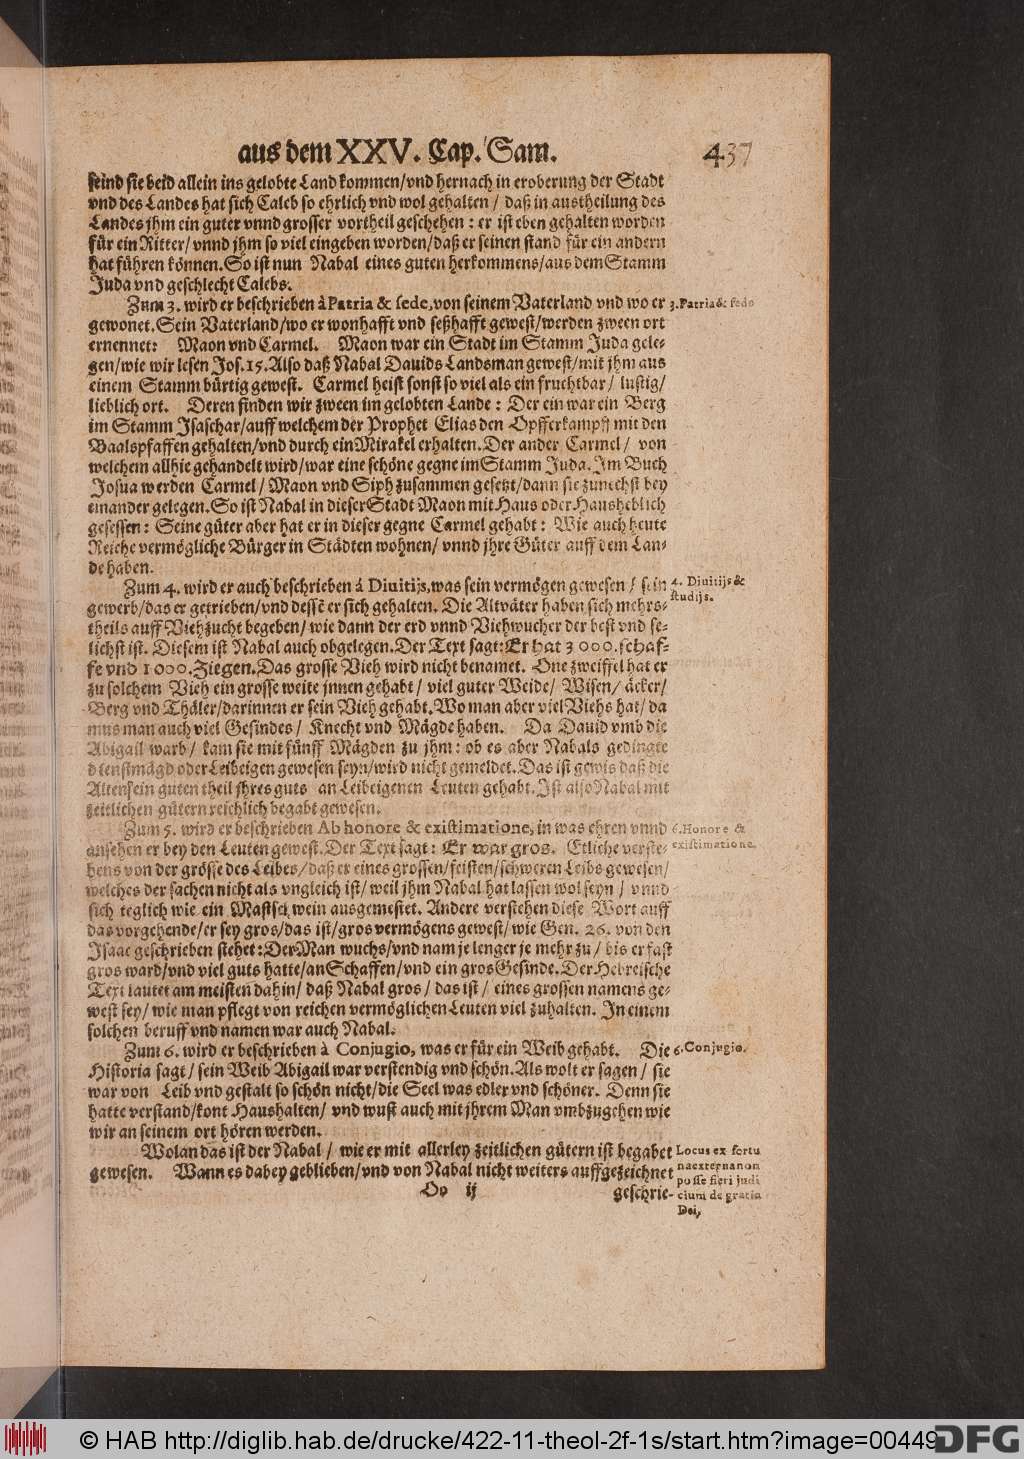 aus dem XXV. Cap. Sam. 437
seind sie beid allein ins gelobte Land kommen/vnd hernach in eroberung der Stadt
vnd des Landes hat sich Caleb so ehrlich vnd wol gehalten / daß in austheilung des
Landes jhm ein guter vnnd grosser vortheil geschehen : er ist eben gehalten worden
für ein Ritter/ vnnd jhm so viel eingeben worden/daß er seinen stand für ein andern
hat führen können. So ist nun Nabal eines guten herkommens/aus dem Stamm
Juda vnd geschlecht Calebs.
Zum 3. wird er beschrieben à Patria & sede, von seinem Vaterland vnd wo er
3. Patria & sede
gewonet. Sein Vaterland/wo er wonhafft vnd seßhafft gewest/werden zween ort
ernennet: Maon vnd Carmel. Maon war ein Stadt im Stamm Juda gele-
gen/wie wir lesen Jos. 15. Also daß Nabal Dauids Landsman gewest/mit jhm aus
einem Stamm bürtig gewest. Carmel heist sonst so viel als ein fruchtbar / lustig/
lieblich ort. Deren finden wir zween im gelobten Lande : Der ein war ein Berg
im Stamm Isaschar/auff welchem der Prophet Elias den Opfferkampff mit den
Baalspfaffen gehalten/vnd durch ein Mirakel erhalten. Der ander Carmel / von
welchem allhie gehandelt wird/war eine schöne gegne im Stamm Juda. Im Buch
Josua werden Carmel / Maon vnd Siph zusammen gesetzt/dann sie zunechst bey
einander gelegen. So ist Nabal in dieser Stadt Maon mit Haus oder Hausheblich
gesessen : Seine güter aber hat er in dieser gegne Carmel gehabt : Wie auch heute
Reiche vermögliche Bürger in Städten wohnen/ vnnd jhre Güter auff dem Lan-
de haben.
Zum 4. wird er auch beschrieben à Diuitijs, was sein vermögen gewesen / sein
4. Diuitijs &
studijs.
gewerb/das er getrieben/vnd dessē er sich gehalten. Die Altväter haben sich mehrs-
theils auff Viehzucht begeben/ wie dann der erd vnnd Viehwucher der best vnd se-
lichst ist. Diesem ist Nabal auch obgelegen. Der Text sagt: Er hat 3000. schaf-
fe vnd 1000. Ziegen. Das grosse Vieh wird nicht benamet. One zweiffel hat er
zu solchem Vieh ein grosse weite jnnen gehabt / viel guter Weide/ Wisen/ äcker/
Berg vnd Thäler/darinnen er sein Vieh gehabt. Wo man aber viel Viehs hat/ da
mus man auch viel Gesindes / Knecht vnd Mägde haben. Da Dauid vmb die
Abigail warb/ kam sie mit fünff Mägden zu jhm : ob es aber Nabals gedingte
dienstmägd oder Leibeigen gewesen seyn/wird nicht gemeldet. Das ist gewis daß die
Alten sein guten theil jhres guts an Leibeigenen Leuten gehabt. Ist also Nabal mit
zeitlichen gütern reichlich begabt gewesen.
Zum 5. wird er beschrieben Ab honore & existimatione, in was ehren vnnd
6. Honore &
existimatione.
ansehen er bey den Leuten gewest. Der Text sagt : Er war gros. Etliche verste-
hens von der grösse des Leibes/daß er eines grossen/feisten/schweren Leibs gewesen/
welches der sachen nicht als vngleich ist/ weil jhm Nabal hat lassen wol seyn / vnnd
sich teglich wie ein Mastschwein ausgemestet. Andere verstehen diese Wort auff
das vorgehende/er sey gros/das ist/gros vermögens gewest/ wie Gen. 26. von den
Isaac geschrieben stehet : Der Man wuchs/vnd nam je lenger je mehr zu/ bis er fast
gros ward/vnd viel guts hatte/an Schaffen/vnd ein gros Gesinde. Der Hebreische
Text lautet am meisten dahin/ daß Nabal gros / das ist / eines grossen namens ge-
west sey/ wie man pflegt von reichen vermöglichen Leuten viel zuhalten. In einem
solchen beruff vnd namen war auch Nabal.
Zum 6. wird er beschrieben à Conjugio, was er für ein Weib gehabt. Die
6. Conjugio.
Historia sagt/ sein Weib Abigail war verstendig vnd schön. Als wolt er sagen/ sie
war von Leib vnd gestalt so schön nicht/die Seel was edler vnd schöner. Denn sie
hatte verstand/kont Haushalten/ vnd wust auch mit jhrem Man vmbzugehen wie
wir an seinem ort hören werden.
Wolan das ist der Nabal / wie er mit allerley zeitlichen gütern ist begabet
gewesen. Wann es dabey geblieben/vnd von Nabal nicht weiters auffgezeichnet
Locus ex fortu
na externa non
posse fieri judi
cium de gratia
Dei,
Oo ij geschrie-
© HAB http://diglib.hab.de/drucke/422-11-theol-2f-1s/start.htm?image=00449
DFG